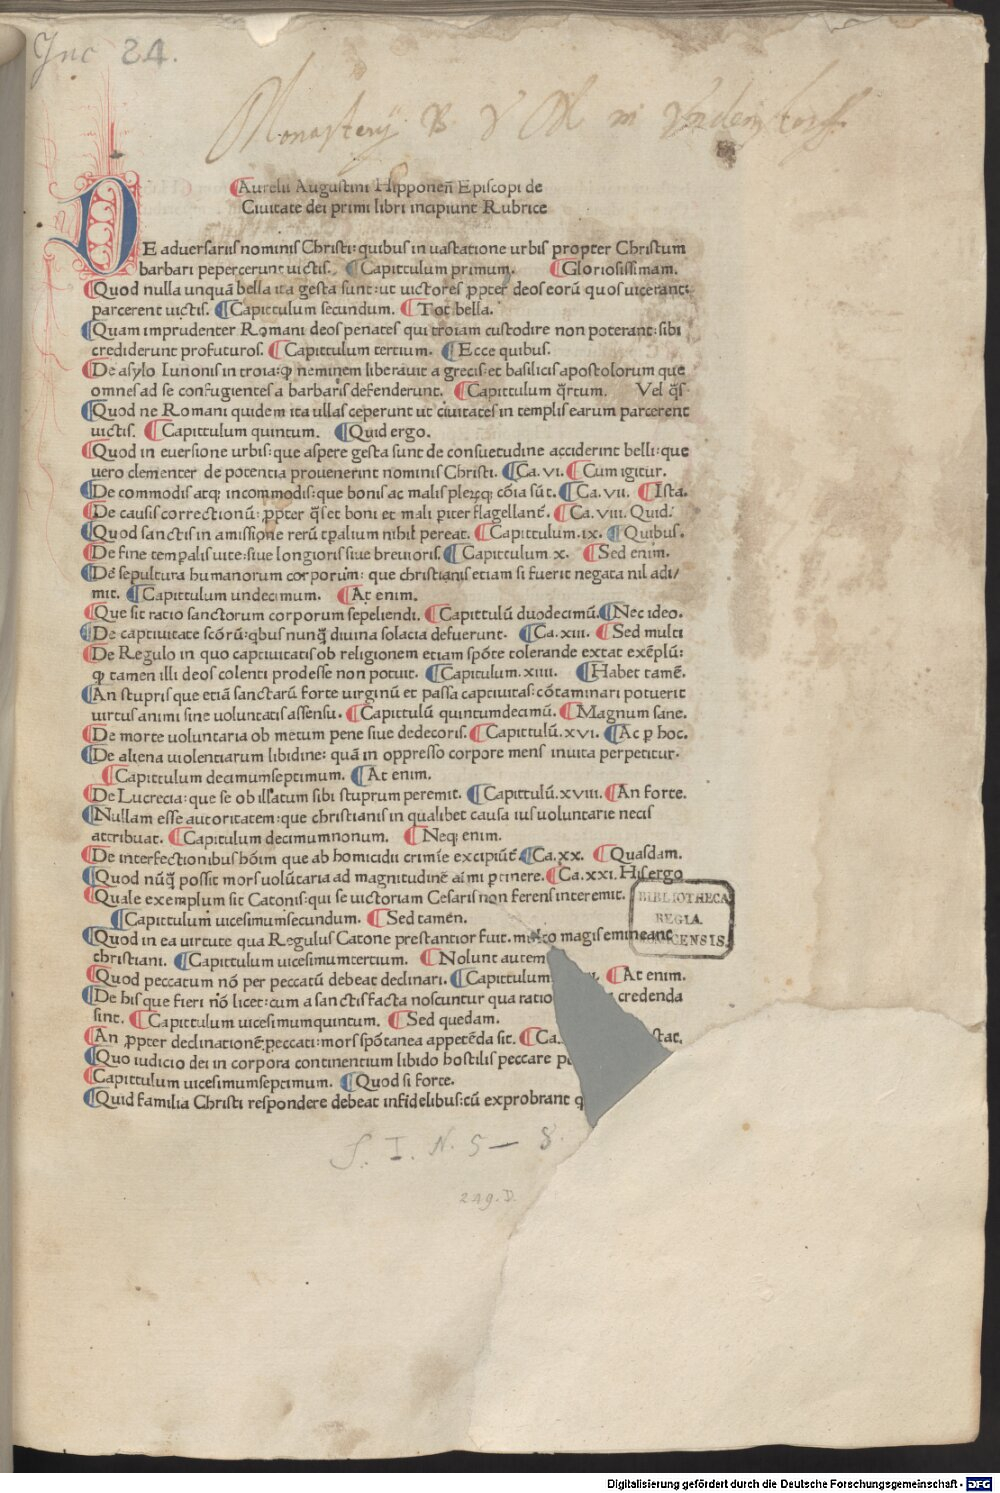 Inc 24.
Monasterij B V M in Vndenstorff.
Aurelii Augustini Hipponeñ Episcopi de
Ciuitate dei primi libri incipiunt Rubrice
DE aduersariis nominis Christi: quibus in uastatione urbis propter Christum
barbari pepercerunt uictis. Capittulum primum. Gloriosissimam.
Quod nulla unquã bella ita gesta sunt: ut uictores ꝓpter deos eorũ quos uicerant:
parcerent uictis. Capittulum secundum. Tot bella.
Quam imprudenter Romani deos penates qui troiam custodire non poterant: sibi
crediderunt profuturos. Capittulum tertium. Ecce quibus.
De asylo Iunonis in troia: ꝙ neminem liberauit a grecis: et basilicis apostolorum que
omnes ad se confugientes a barbaris defenderunt. Capittulum q̃rtum. Vel q̃s
Quod ne Romani quidem ita ullas ceperunt ut ciuitates in templis earum parcerent
uictis. Capittulum quintum. Quid ergo.
Quod in euersione urbis: que aspere gesta sunt de consuetudine acciderint belli: que
uero clementer de potentia prouenerint nominis Christi. Ca. vi. Cum igitur.
De commodis atq; incommodis: que bonis ac malis plerꝫq; cõia sũt. Ca. vii. Ista.
De causis correctionũ: ꝓpter q̃s et boni et mali ꝑiter flagellant̃. Ca. viii. Quid.
Quod sanctis in amissione rerũ tꝑalium nihil pereat. Capittulum. ix. Quibus.
De fine temꝑalis uite: siue longioris siue breuioris. Capittulum. x. Sed enim.
De sepultura humanorum corporum: que christianis etiam si fuerit negata nil adi/
mit. Capittulum undecimum. At enim.
Que sit ratio sanctorum corporum sepeliendi. Capittulũ duodecimũ. Nec ideo.
De captiuitate scõrũ: qbus nunq̃ diuina solacia defuerunt. Ca. xiii. Sed multi
De Regulo in quo captiuitatis ob religionem etiam spõte tolerande extat exẽplũ:
ꝙ tamen illi deos colenti prodesse non potuit. Capitulum. xiiii. Habet tamẽ.
An stupris que etiã sanctarũ forte uirginũ et passa captiuitas: cõtaminari potuerit
uirtus animi sine uoluntatis assensu. Capittulũ quintumdecimũ. Magnum sane.
De morte uoluntaria ob metum pene siue dedecoris. Capittulũ. xvi. Ac ꝑ hoc.
De aliena uiolentiarum libidine: quã in oppresso corpore mens inuita perpetitur.
Capittulum decimumseptimum. At enim.
De Lucrecia: que se ob illatum sibi stuprum peremit. Capittulũ. xviii. An forte.
Nullam esse autoritatem: que christianis in qualibet causa ius uoluntarie necis
attribuat. Capitulum decimumnonum. Neq; enim.
De interfectionibus hõim que ab homicidii crimĩe excipiũt̃. Ca. xx. Quasdam.
Quod nũq̃ possit mors uolũtaria ad magnitudinẽ aĩmi ꝑtinere. Ca. xxi. His ergo
Quale exemplum sit Catonis: qui se uictoriam Cesaris non ferens interemit.
Capittulum uicesimumsecundum. Sed tamen.
BIBLIOTHECA
REGIA
MONACENSIS.
Quod in ea uirtute qua Regulus Catone prestantior fuit. multo magis emineant
christiani. Capittulum uicesimumtertium. Nolunt autem
Quod peccatum nõ per peccatũ debeat declinari. Capittulum At enim.
De his que fieri nõ licet: cum a sanctis facta noscuntur qua ratio credenda
sint. Capittulum uicesimumquintum. Sed quedam.
An ꝓpter declinationẽ peccati: mors spõtanea appetẽda sit. Ca. stat.
Quo iudicio dei in corpora continentium libido hostilis peccare p
Capittulum uicesimumseptimum. Quod si forte.
Quid familia Christi respondere debeat infidelibus: cũ exprobrant q
S. I. N. 5 — 8.
249. D.
Digitalisierung gefördert durch die Deutsche Forschungsgemeinschaft - DFG